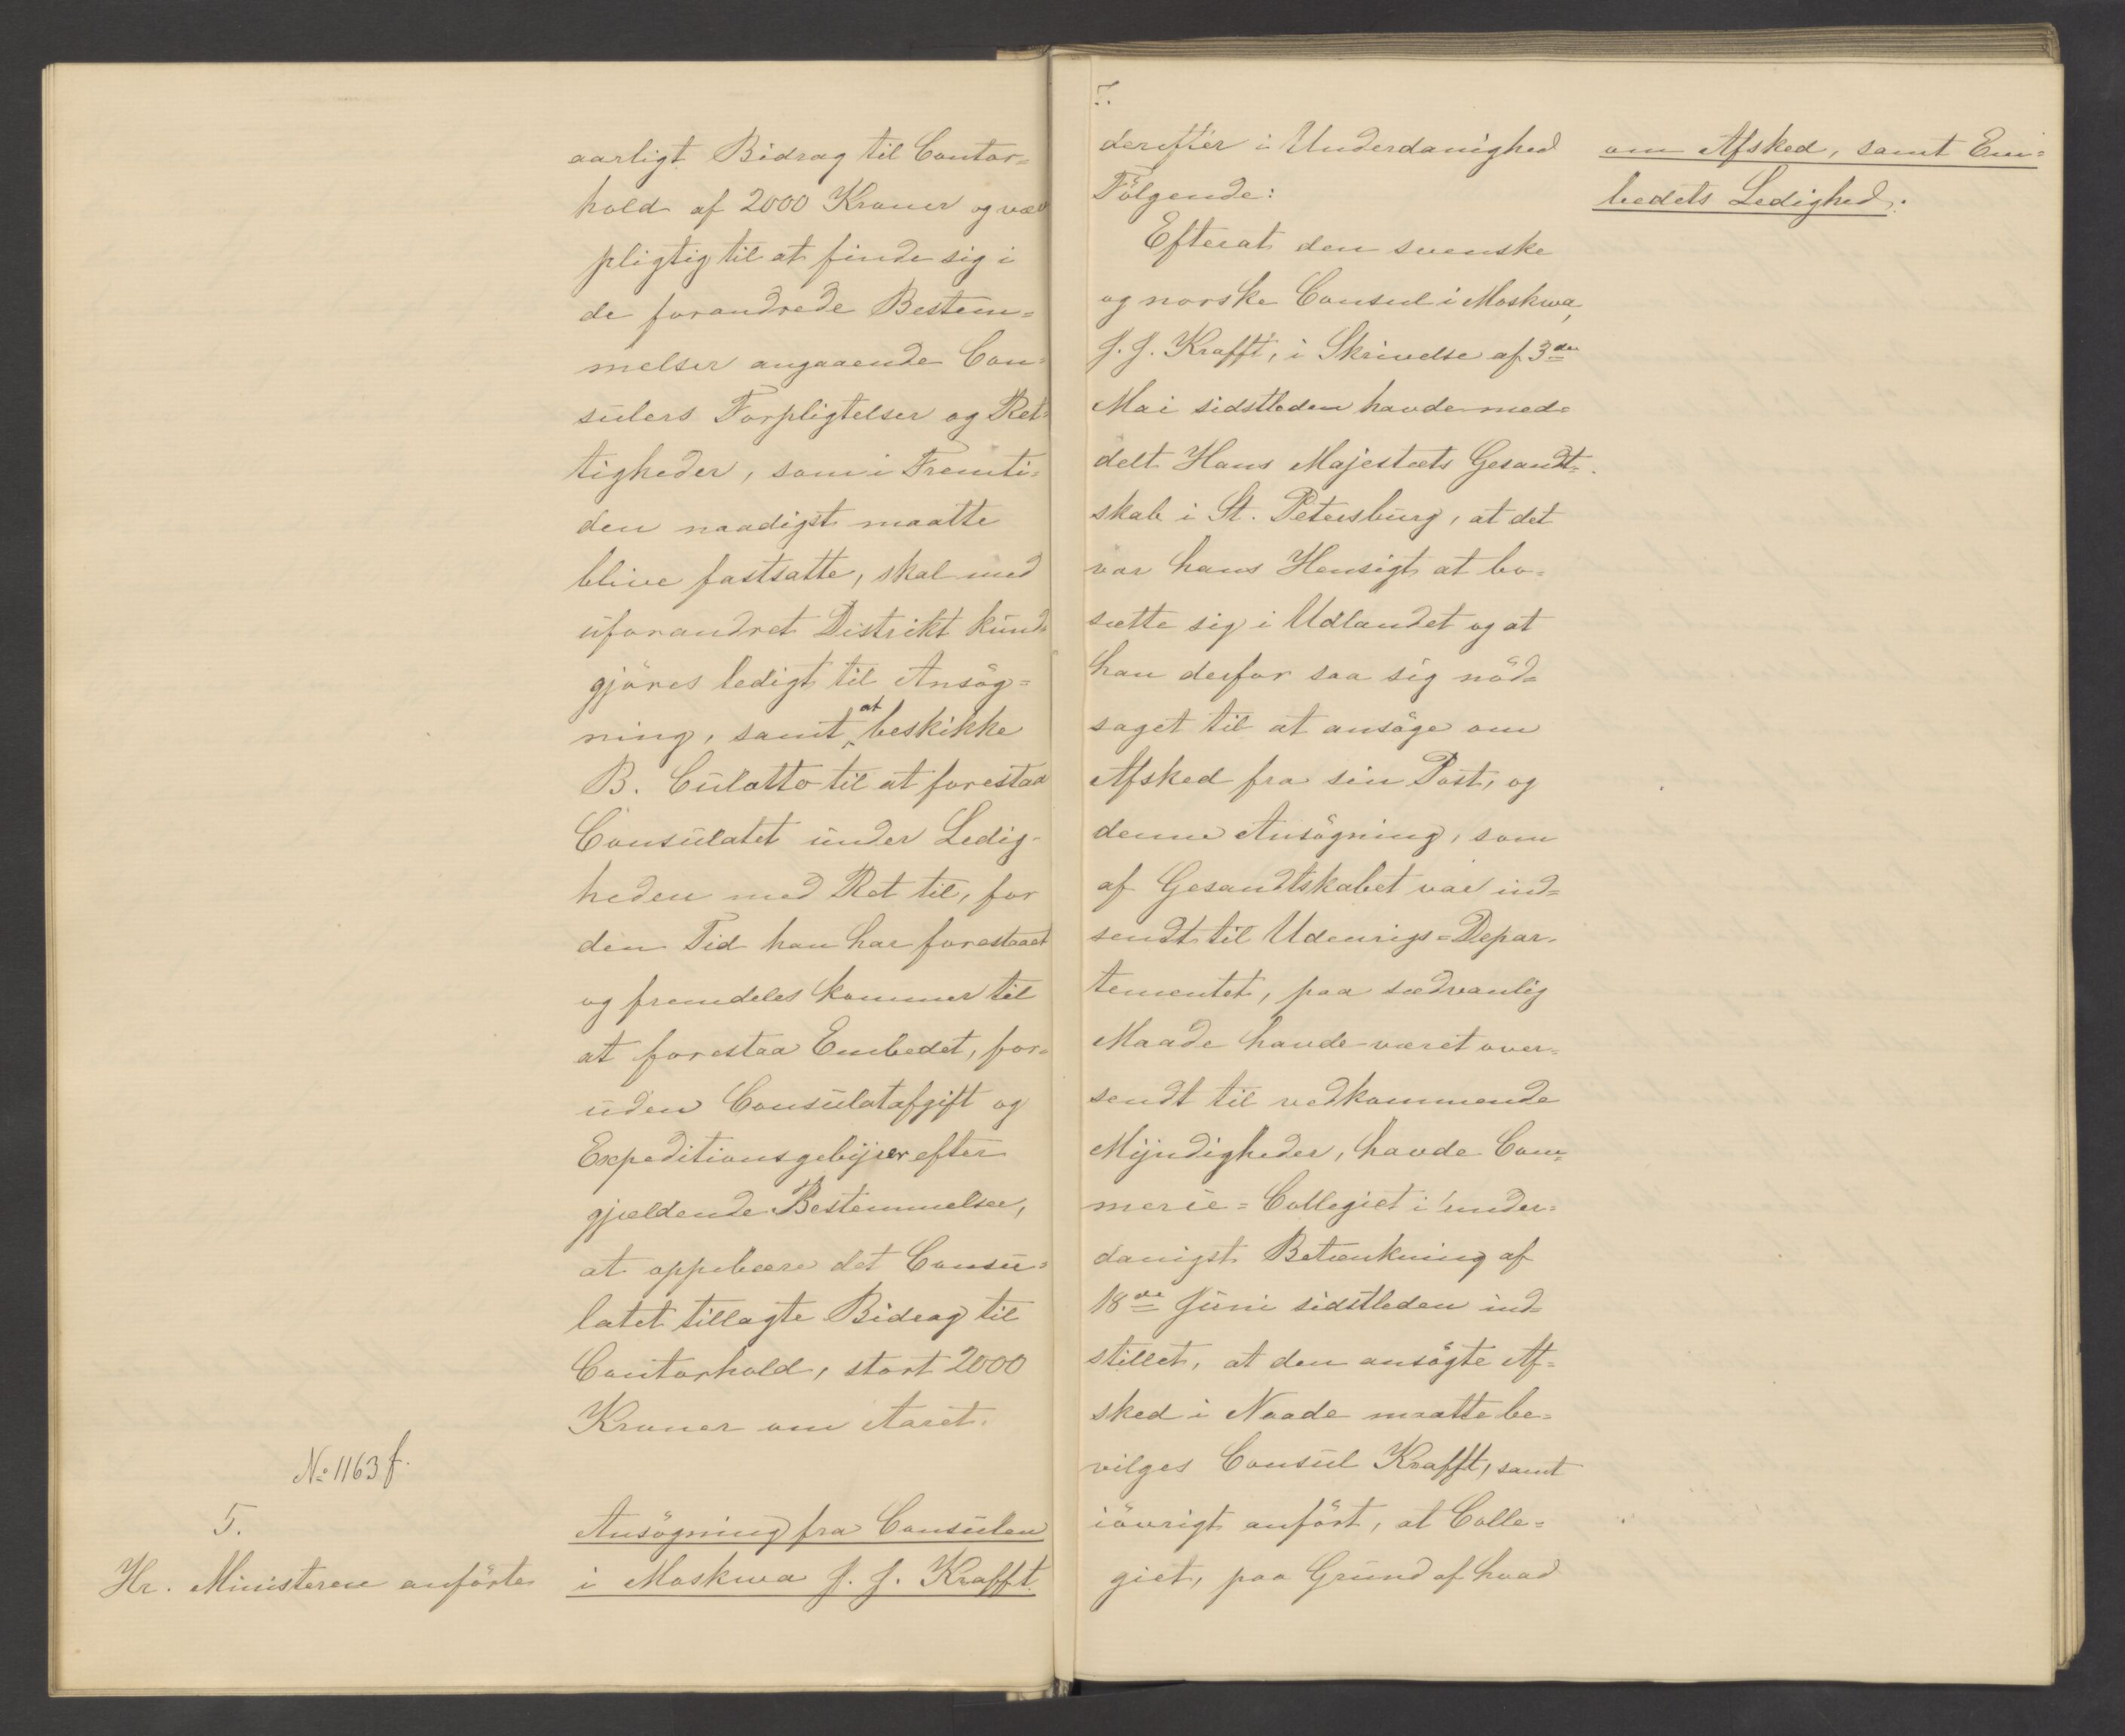 aarligt Bidrag til Contor=
hold af 2000 Kroner og være
pligtig til at finde sig i
de forandrede Bestem=
melser angaaende Con=
sulers Forpligtelser og Ret=
tigheder, som i Fremti=
den naadigst maatte
blive fastsatte, skal med
uforandret Distrikt kund=
gjöres ledigt til Ansög=
ning, samt at beskikke
B. Culatto til at forestaa
Consulatet under Ledig-
heden med Ret til, for
den Tid han har forestaaet
og fremdeles kommer til
at forestaa Embedet, for=
uden Consulatafgift og
Expeditionsgebyrer efter
gjældende Bestemmelser,
at oppebære det Consu=
latet tillagte Bidrag til
Contorhold, stort 2000
Kroner om Aaret.
No 1163 f.
5.
Hr. Ministeren anförte
Ansögning fra Consulen
i Moskwa J. J. Krafft
5.
derefter i Underdanighed
Fölgende:
om Afsked, samt Em=
bedets Ledighed.
Efterat den svenske
og norske Consul i Moskwa,
J. J. Krafft, i Skrivelse af 3die
Mai sidstleden havde med=
delt Hans Majestæts Gesandt=
skab i St. Petersburg, at det
var hans Hensigt at bo=
sætte sig i Udlandet og at
han derfor saa sig nöd=
saget til at ansöge om
Afsked fra sin Post, og
denne Ansögning, som
af Gesandtskabet var ind=
sendt til Udenrigs=Depar=
tementet, paa sædvanlig
Maade havde været over=
sendt til vedkommende
Myndigheder, havde Com=
merce=Collegiet i under=
danigst Betænkning af
18de Juni sidstleden ind=
stillet, at den ansögte Af=
sked i Naade maatte be=
vilges Consul Krafft, samt
iövrigt anfört, at Colle=
giet, paa Grund af hvad